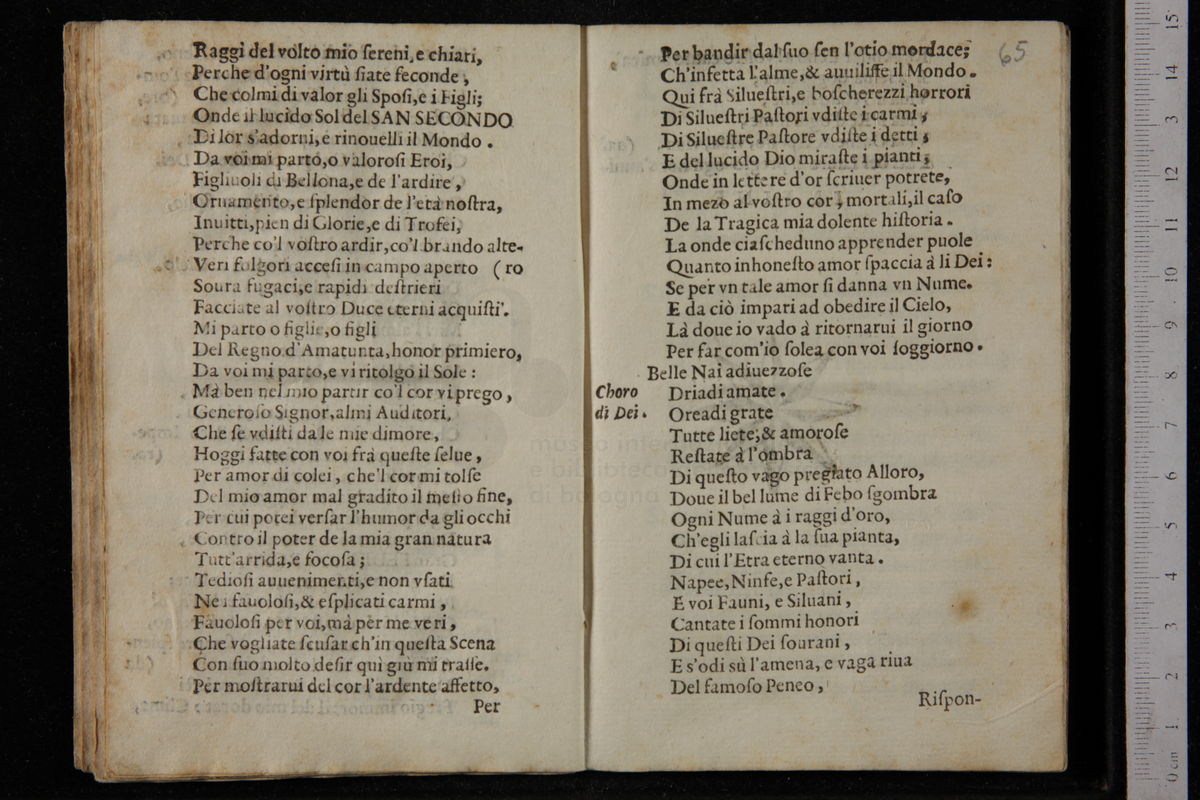 Raggi del volto mio ſereni, e chiari,
Perche d'ogni virtù ſiate feconde,
Che colmi di valor gli Spoſi,e i Figli;
Onde il lucido Sol del SAN SECONDO
Di lor s'adorni,e rinouelli il Mondo.
Da voi mi parto,o valoroſi Eroi,
Figliuoli di Bellona,e de l'ardire,
Ornamento,e ſplendor de l'età noſtra,
Inuitti,pien di Glorie,e di Trofei,
Perche co'l voſtro ardir,co'l brando alte-
Veri folgori acceſi in campo aperto (ro
Soura fugaci,e rapidi deſtrieri
Facciate al voſtro Duce eterni acquiſti.
Mi parto o figlie,o figli
Del Regno d'Amatunta,honor primiero,
Da voi mi parto,e vi ritolgo il Sole:
Mà ben nel mio partir co'l cor vi prego,
Generoſo Signor,almi Auditori,
Che ſe vdiſti da le mie dimore,
Hoggi fatte con voi frà queſte ſelue,
Per amor di colei, che'l cor mi tolſe
Del mio amor mal gradito il meſto fine,
Per cui potei verſar l'humor da gli occhi
Contro il poter de la mia gran natura
Tutt'arrida,e focoſa;
Tedioſi auuenimenti,e non vſati
Ne i fauoloſi,& eſplicati carmi,
Fauoloſi per voi,mà per me veri,
Che vogliate ſcuſar ch'in queſta Scena
Con ſuo molto deſir quì giù mi traſſe.
Per moſtrarui del cor l'ardente affetto,
Per
65
Per bandir dal ſuo ſen l'otio mordace;
Ch'infetta l'alme,& auuiliſſe il Mondo.
Qui frà Silueſtri,e boſcherezzi horrori
Di Silueſtri Paſtori vdiſte i carmi,
Di Silueſtre Paſtore vdiſte i detti;
E del lucido Dio miraſte i pianti;
Onde in lettere d'or ſcriuer potrete,
In mezo al voſtro cor, mortali,il caſo
De la Tragica mia dolente hiſtoria.
La onde ciaſcheduno apprender puole
Quanto inhoneſto amor ſpaccia à li Dei:
Se per vn tale amor ſi danna vn Nume.
E da ciò impari ad obedire il Cielo,
Là doue io vado à ritornarui il giorno
Per far com'io ſolea con voi ſoggiorno.
Belle Nai adiuezzoſe
Choro Driadi amate.
di Dei. Oreadi grate
Tutte liete,& amoroſe
Reſtate à l'ombra
Di queſto vago pregiato Alloro,
Doue il bel lume di Febo ſgombra
Ogni Nume à i raggi d'oro,
Ch'egli laſcia à la ſua pianta,
Di cui l'Etra eterno vanta.
Napee,Ninfe,e Paſtori,
E voi Fauni, e Siluani,
Cantate i ſommi honori
Di queſti Dei ſourani,
E s'odi sù l'amena, e vaga riua
Del famoſo Peneo,
Riſpon-